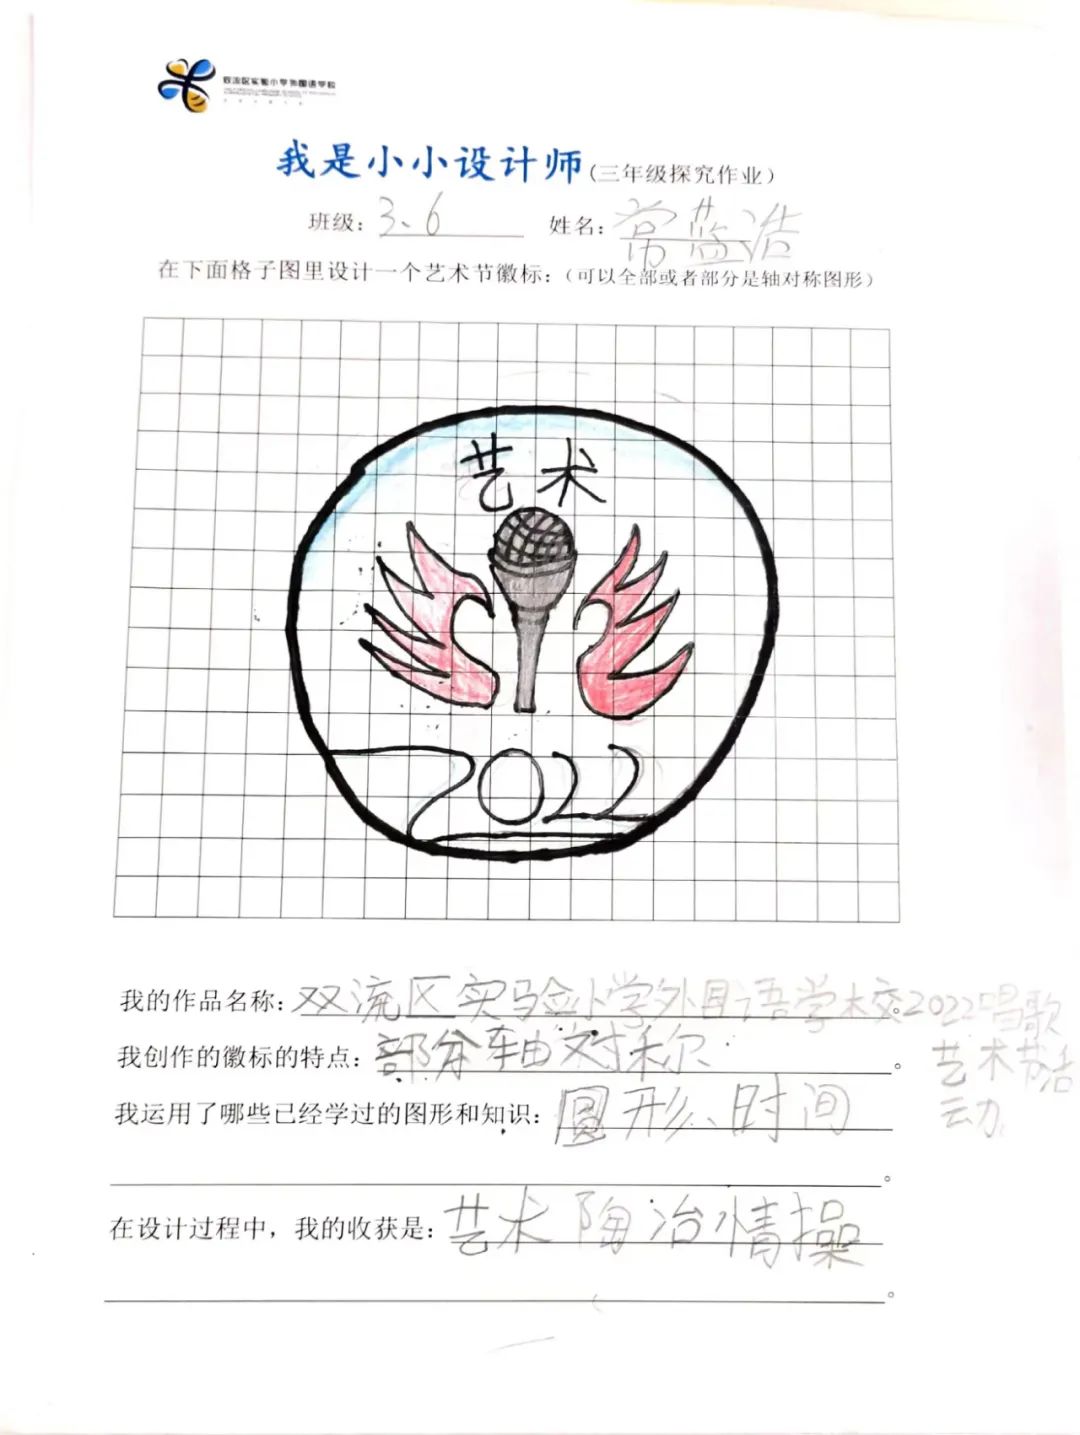 双流区实验小学外国语学校
我是小小设计师(三年级探究作业)
班级: 3、6 姓名: 常蓝浩
在下面格子图里设计一个艺术节徽标:(可以全部或者部分是轴对称图形)
艺术
2022
我的作品名称: 双流区实验小学外国语学校2022唱歌
艺术节活
动
我创作的徽标的特点: 部分轴对称。
我运用了哪些已经学过的图形和知识: 圆形、时间
。
在设计过程中，我的收获是: 艺术陶冶情操
。